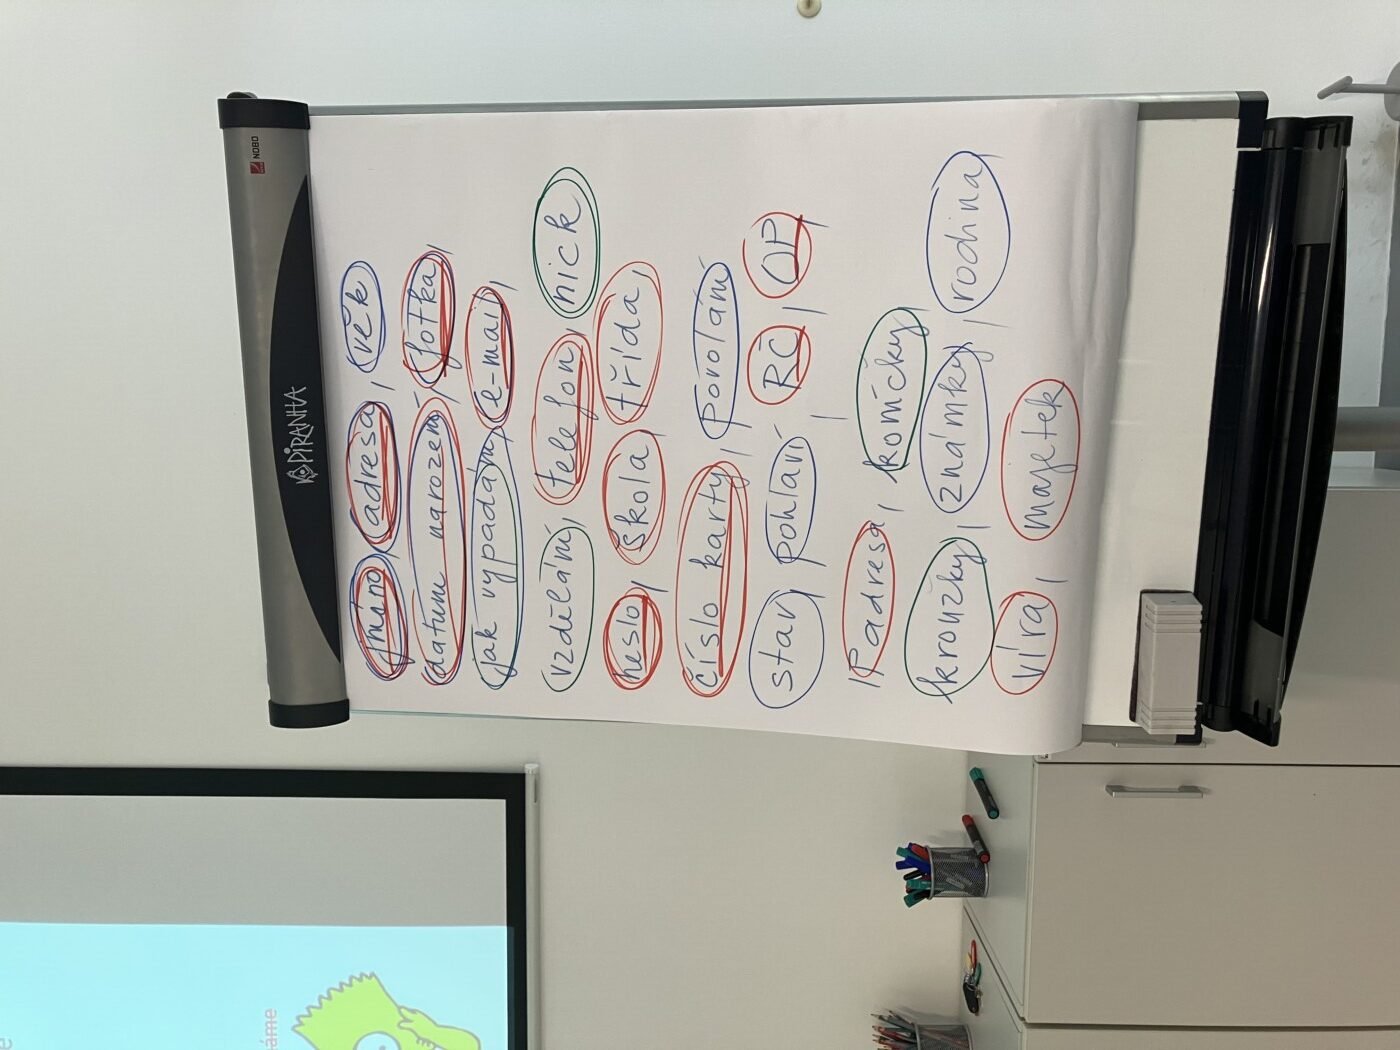 NOBO
PIRANHA
jméno, adresa, věk
datum narození, fotka,
jak vypadám, e-mail,
vzdělání, telefon, nick
heslo, škola, třída,
číslo karty, povolání
stav, pohlaví, RČ, OP,
IP adresa, koníčky,
kroužky, známky, rodina,
víra, majetek
áme
e